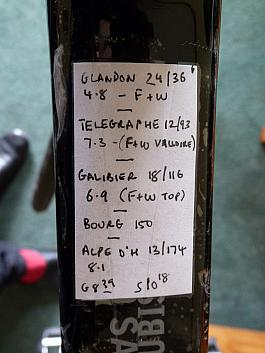 GLANDON 24/36
4.8 - F+W
TELEGRAPHE 12/93
7.3 - (F+W VALLOIRE)
GALIBIER 18/116
6.9 (F+W TOP)
BOURG 150
ALPE D'H 13/174
8.1
G8 39 S10 18